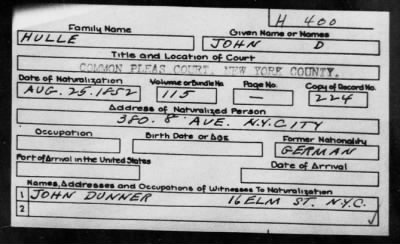 H 400
Family Name Given Name or Names
HULLE JOHN D
Title and Location of Court
COMMON PLEAS COURT, NEW YORK COUNTY.
Date of Naturalization Volume or Bundle No. Page No. Copy of Record No.
AUG. 25. 1852 115 — 224
Address of Naturalized Person
380. 8 AVE. N.Y. CITY
Occupation Birth Date or Age Former Nationality
GERMAN
Port of Arrival in the United States Date of Arrival
Names, Addresses and Occupations of Witnesses To Naturalization
1 JOHN DUNNER 16 ELM ST. N.Y.C.
2